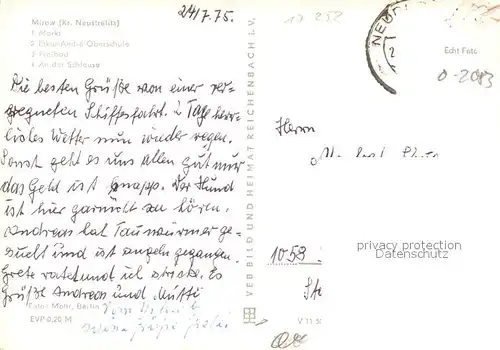 24/7.75.
Mirow (Kr. Neustrelitz)
1 Markt
2 Etkar-André-Oberschule
3 Freibad
4 An der Schleuse
Die besten Grüße von einer ver-
regneten Schiffsfahrt. 2 Tage herr-
liches Wetter nun wieder regen.
Sonst geht es uns allen gut nur
das Geld ist knapp. Der Hund
ist hier garnicht zu hören.
Andreas hat Tauwürmer ge-
sucht und ist angeln gegangen.
Grete ratet und ich stricke. Es
Grüße Andreas und Mutti
Foto: Mohr, Berlin
EVP 0,20 M
VEB BILD UND HEIMAT REICHENBACH I. V.
10 252
NEU
Echt Foto
0-2083
Herrn
1053
privacy protection
Datenschutz
V 11 50